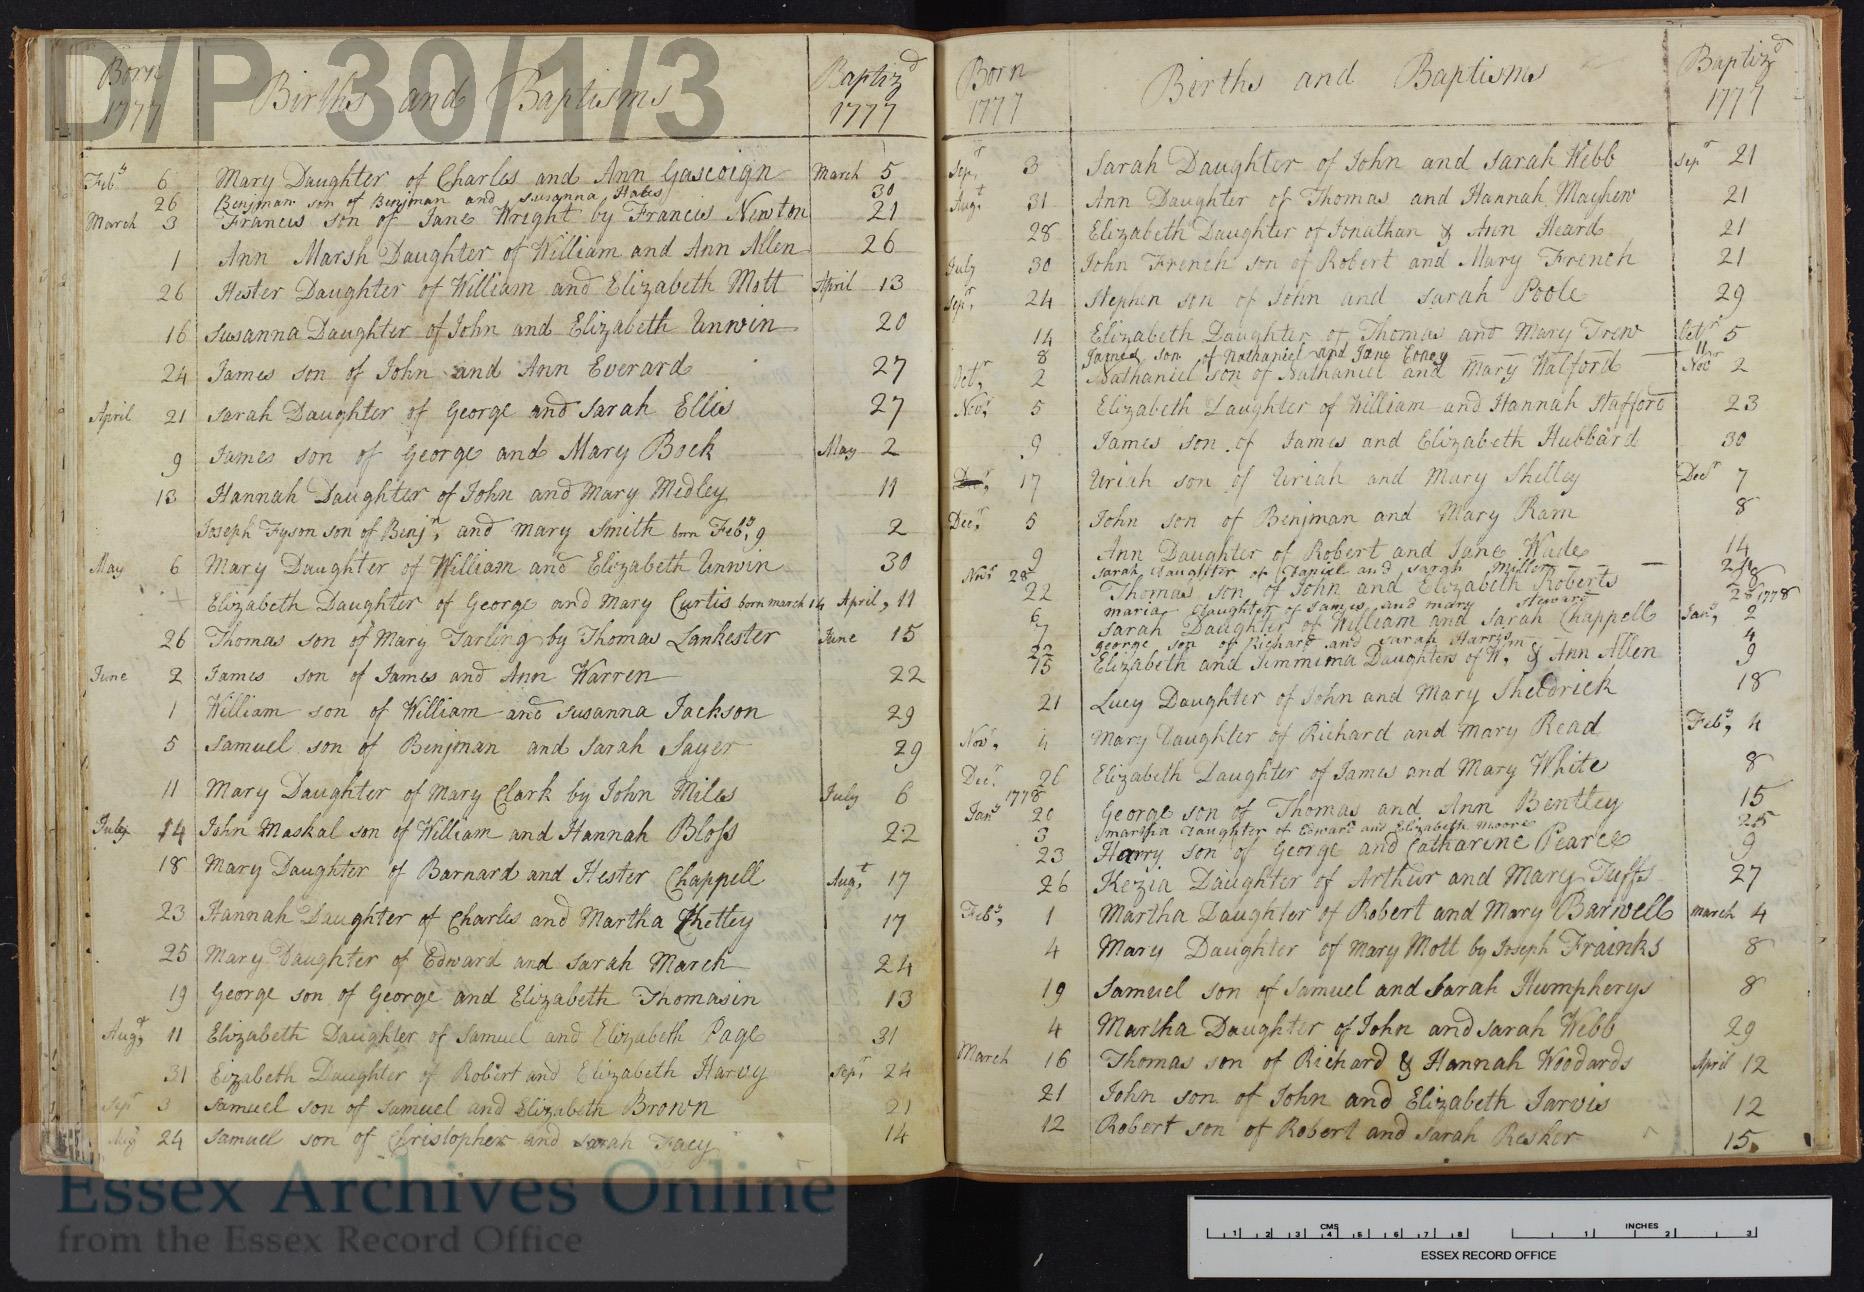 D/P 30/1/3
Born 1777 Births and Baptisms Baptizd 1777
Feby 6 Mary Daughter of Charles and Ann Gascoign March 5
26 Benjman son of Benjman and Susanna Hales 30
March 3 Francis son of Jane Wright by Francis Newton 21
1 Ann Marsh Daughter of William and Ann Allen 26
26 Hester Daughter of William and Elizabeth Mott April 13
16 Susanna Daughter of John and Elizabeth Unwin 20
24 James son of John and Ann Everard 27
April 21 Sarah Daughter of George and Sarah Ellis 27
9 James son of George and Mary Bock May 2
13 Hannah Daughter of John and Mary Medley 11
Joseph Fyson son of Benjn, and mary Smith born Feby, 9 2
May 6 Mary Daughter of William and Elizabeth Unwin 30
+ Elizabeth Daughter of George and Mary Curtis born march 14 April, 11
26 Thomas son of Mary Tarling by Thomas Lankester June 15
June 2 James son of James and Ann Warren 22
1 William son of William and Susanna Jackson 29
5 Samuel son of Benjman and Sarah Sayer 29
11 Mary Daughter of Mary Clark by John Miles July 6
July 14 John Maskal son of William and Hannah Bloss 22
18 Mary Daughter of Barnard and Hester Chappell Augt 17
23 Hannah Daughter of Charles and Martha 17
25 Mary Daughter of Edward and Sarah March 24
19 George son of George and Elizabeth Thomasin 13
Augt, 11 Elizabeth Daughter of Samuel and Elizabeth Page 31
31 Eizabeth Daughter of Robert and Elizabeth Harvy Sepr 24
Sepr 3 Samuel son of Samuel and Elizabeth Brown 21
Augt 24 Samuel son of Cristopher and Sarah Facy 14
Born 1777 Births and Baptisms Baptizd 1777
Sepr, 3 Sarah Daughter of John and Sarah Webb Sepr 21
Augt, 31 Ann Daughter of Thomas and Hannah Mayhew 21
28 Elizabeth Daughter of Jonathan & Ann Heard 21
July 30 John French son of Robert and Mary French 21
Sepr, 24 Stephen son of John and Sarah Poole 29
14 Elizabeth Daughter of Thomas and Mary Trew Octr 5
8 James son of Nathaniel and Jane Coney 11
Octr, 2 Nathaniel son of Nathaniel and Mary Walford Novr 2
Novr, 5 Elizabeth Daughter of William and Hannah Stafford 23
9 James son of James and Elizabeth Hubbard 30
Decr, 17 Uriah son of Uriah and Mary Shelley Decr 7
Decr, 5 John son of Benjman and Mary Ram 8
9 Ann Daughter of Robert and Jane Wade 14
Novr 28 Sarah Daughter of Daniel and Sarah Miller 24
22 Thomas son of John and Elizabeth Roberts 28
6 maria Daughter of James and mary Steward 28 1778
7 Sarah Daughter of William and Sarah Chappell Jany, 2
22 george son of Richard and Sarah Harris 4
15 Elizabeth and Jimmima Daughters of Wm, & Ann Allen 9
21 Lucy Daughter of John and Mary Sheldrick 18
Novr, 4 Mary Daughter of Richard and Mary Read Feby, 4
Decr 26 Elizabeth Daughter of James and Mary White 8
1778
Jany 20 George son of Thomas and Ann Bentley 15
3 martha Daughter of Edward and Elizabeth Moore 25
23 Harry son of George and Catharine Pearce 9
26 Kezia Daughter of Arthur and Mary Tuffs 27
Feby, 1 Martha Daughter of Robert and Mary Barwell march 4
4 Mary Daughter of Mary Mott by Joseph Frainks 8
19 Samuel son of Samuel and Sarah Humpherys 8
4 Martha Daughter of John and Sarah Webb 29
March 16 Thomas son of Richard & Hannah Woodards April 12
21 John son of John and Elizabeth Jarvis 12
12 Robert son of Robert and Sarah Resker 15
Essex Archives Online
from the Essex Record Office
CMS 1 2 3 4 5 6 7 8 INCHES 1 2 3
ESSEX RECORD OFFICE